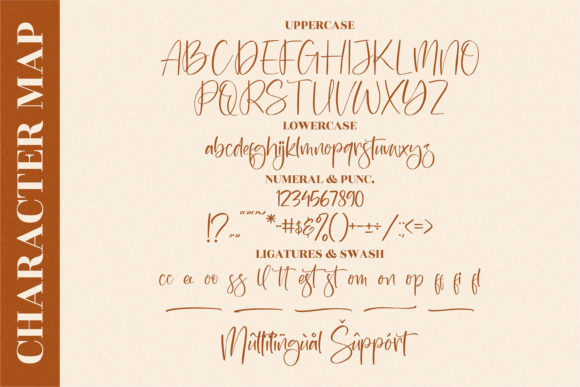 CHARACTER MAP
UPPERCASE
ABCDEFGHIJKLMNO
PQRSTUVWXYZ
LOWERCASE
abcdefghijklmnopqrstuvwxyz
NUMERAL & PUNC.
1234567890
!?,,„"“”''*~#$&%()+-±÷/:;<=>
LIGATURES & SWASH
cc ee oo ss ll tt est st om on op ff fi fl
Mûltïlîñgùål Šûppórt